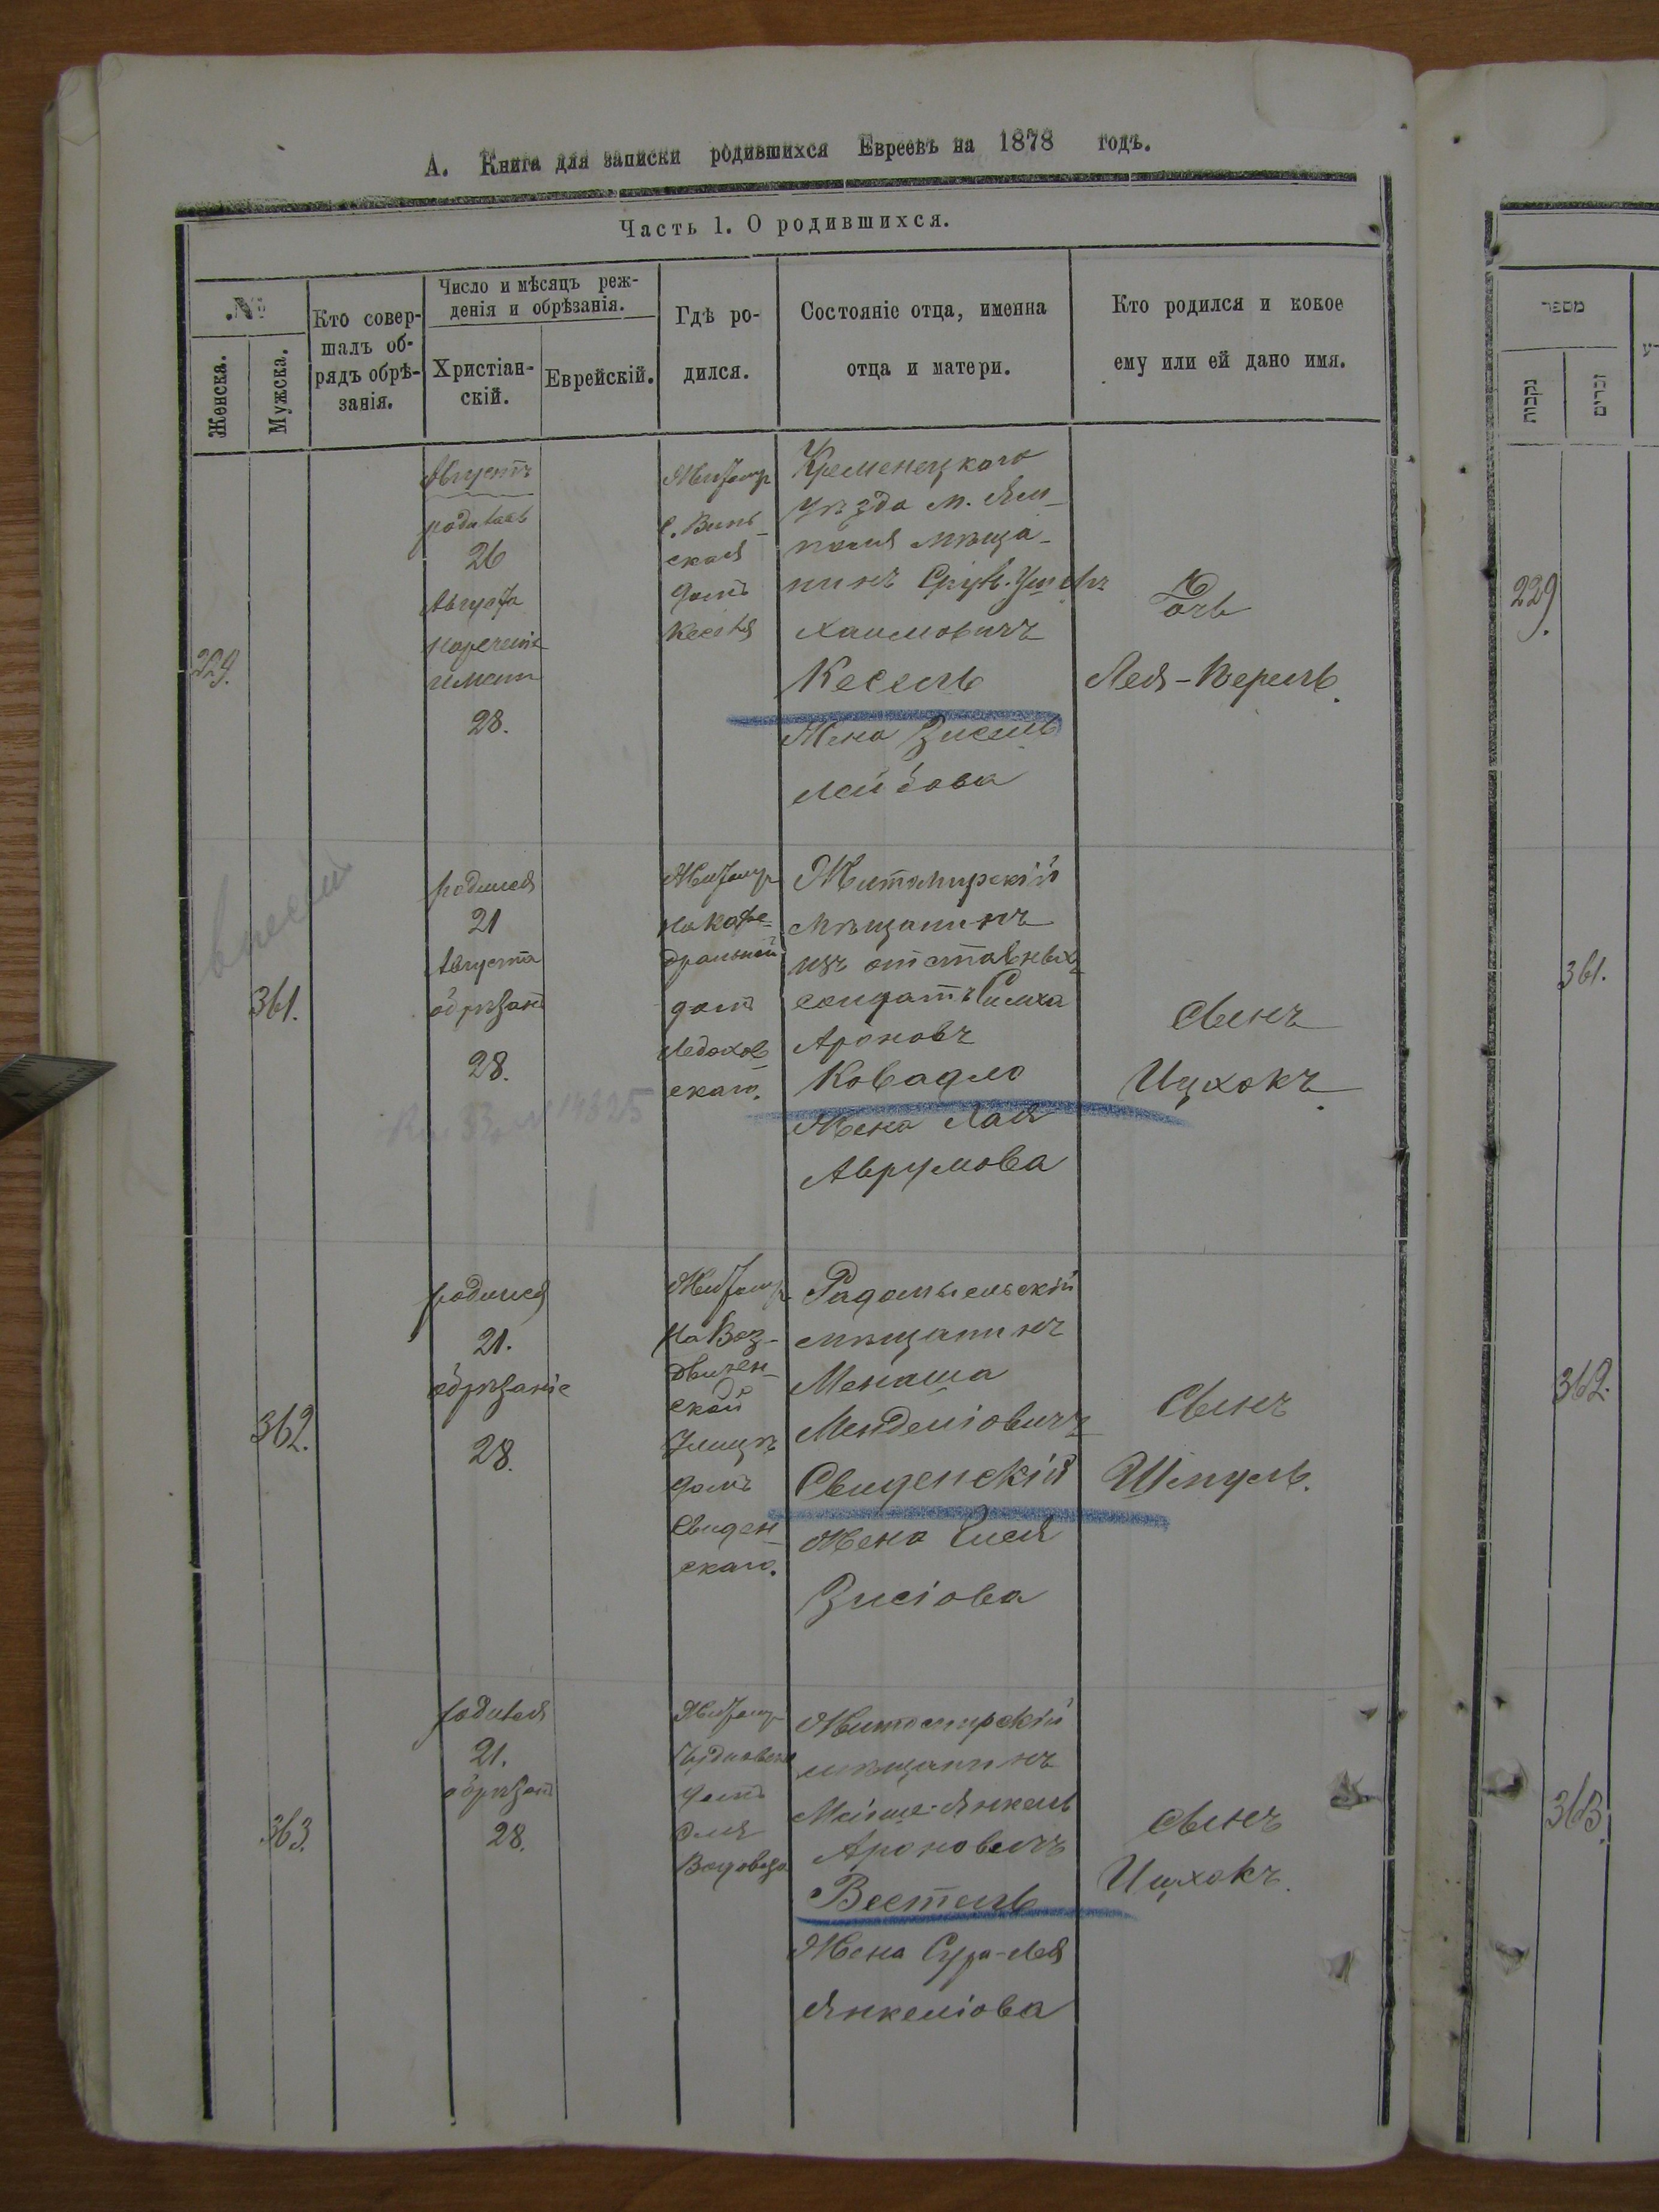 А. Книга для записки родившихся Евреевъ на 1878 годъ.
Часть 1. О родившихся.
№
Женска.
Мужска.
Кто совер-
шалъ об-
рядъ обрѣ-
занія.
Число и мѣсяцъ реж-
денія и обрѣзанія.
Христіан-
скій.
Еврейскій.
Гдѣ ро-
дился.
Состояніе отца, именна
отца и матери.
Кто родился и кокое
ему или ей дано имя.
229.
Августъ
родилась
26
Августа
нареченіе
имени
28.
Житомир
с. Виль-
ская
домъ
Кеселя
Кременецкаго
уѣзда м. Ям-
поля мѣща-
нинъ
Хаимовичъ
Кесель
Жена Зисель
Лейбова
Дочь
Лея-Перель.
361.
родился
21
Августа
обрѣзанъ
28.
Житомир
на Кафе-
дральной
домъ
Ледохов
скаго.
Житомирскій
мѣщанинъ
изъ отставныхъ
солдатъ Симха
Ароновъ
Ковадло
Жена Хая
Аврумова
Сынъ
Ицхокъ.
362.
родился
21.
обрѣзаніе
28.
Житомир
на Воз-
движен-
ской
Улицѣ
домъ
Свиден
скаго.
Радомысльскій
мѣщанинъ
Менаша
Менделіовичъ
Свиденскій
Жена
Зисіова
Сынъ
Шмуль.
363.
родился
21.
обрѣзанъ
28.
Житомир
домъ
Житомирскій
мѣщанинъ
Мойше-Янкель
Ароновичъ
Вестель
Жена Сура-Лея
Янкеліова
Сынъ
Ицхокъ.
מספר
נקבות
זכרים
229.
361.
362.
363.